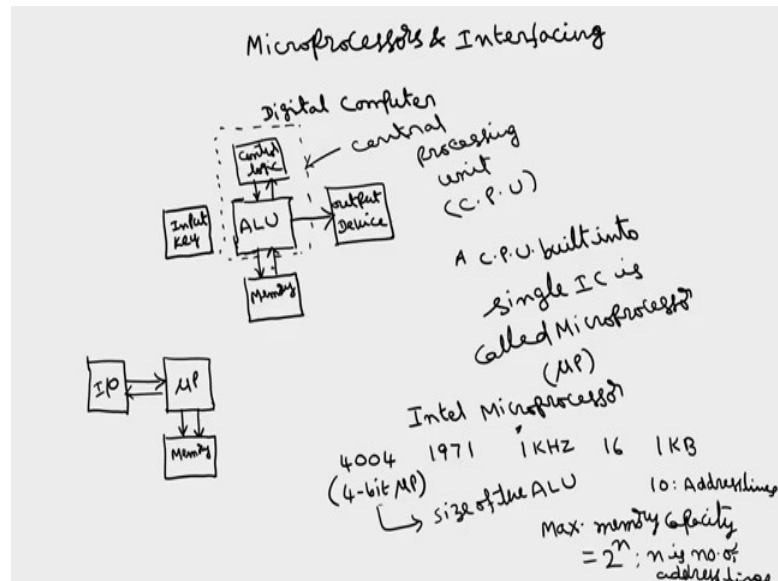 Microprocessors & Interfacing
Digital Computer
central
processing
unit
(C.P.U)
Control
logic
Input
Key
ALU
output
Device
Memory
A C.P.U. built into
single IC is
called Microprocessor
(μP)
I/O
μP
Memory
Intel Microprocessor
4004 1971 1KHZ 16 1KB
(4-bit μP)
size of the ALU
10: Address lines
Max. memory capacity
= 2^n ; n is no. of
address lines